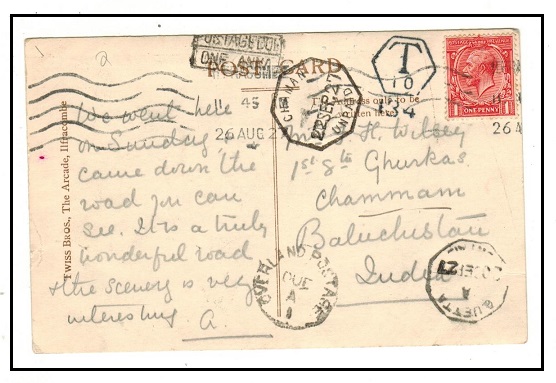 POSTAGE DUE
ONE ANNA
POST CARD
T
10
134
11 45
26 AUG 27
26 A
ONE PENNY
CHAMAN
UNPAID
Address only to be
written here
We went here
on Sunday &
came down the
road you can
see. It is a truly
wonderful road
& the scenery is very
interesting A.
H. Wilsey
1st 8th Ghurkas
Chammam
Baluchistan
India
OVERLAND POSTAGE
DUE
A
1
QUETTA
A
Twiss Bros., The Arcade, Ilfracombe